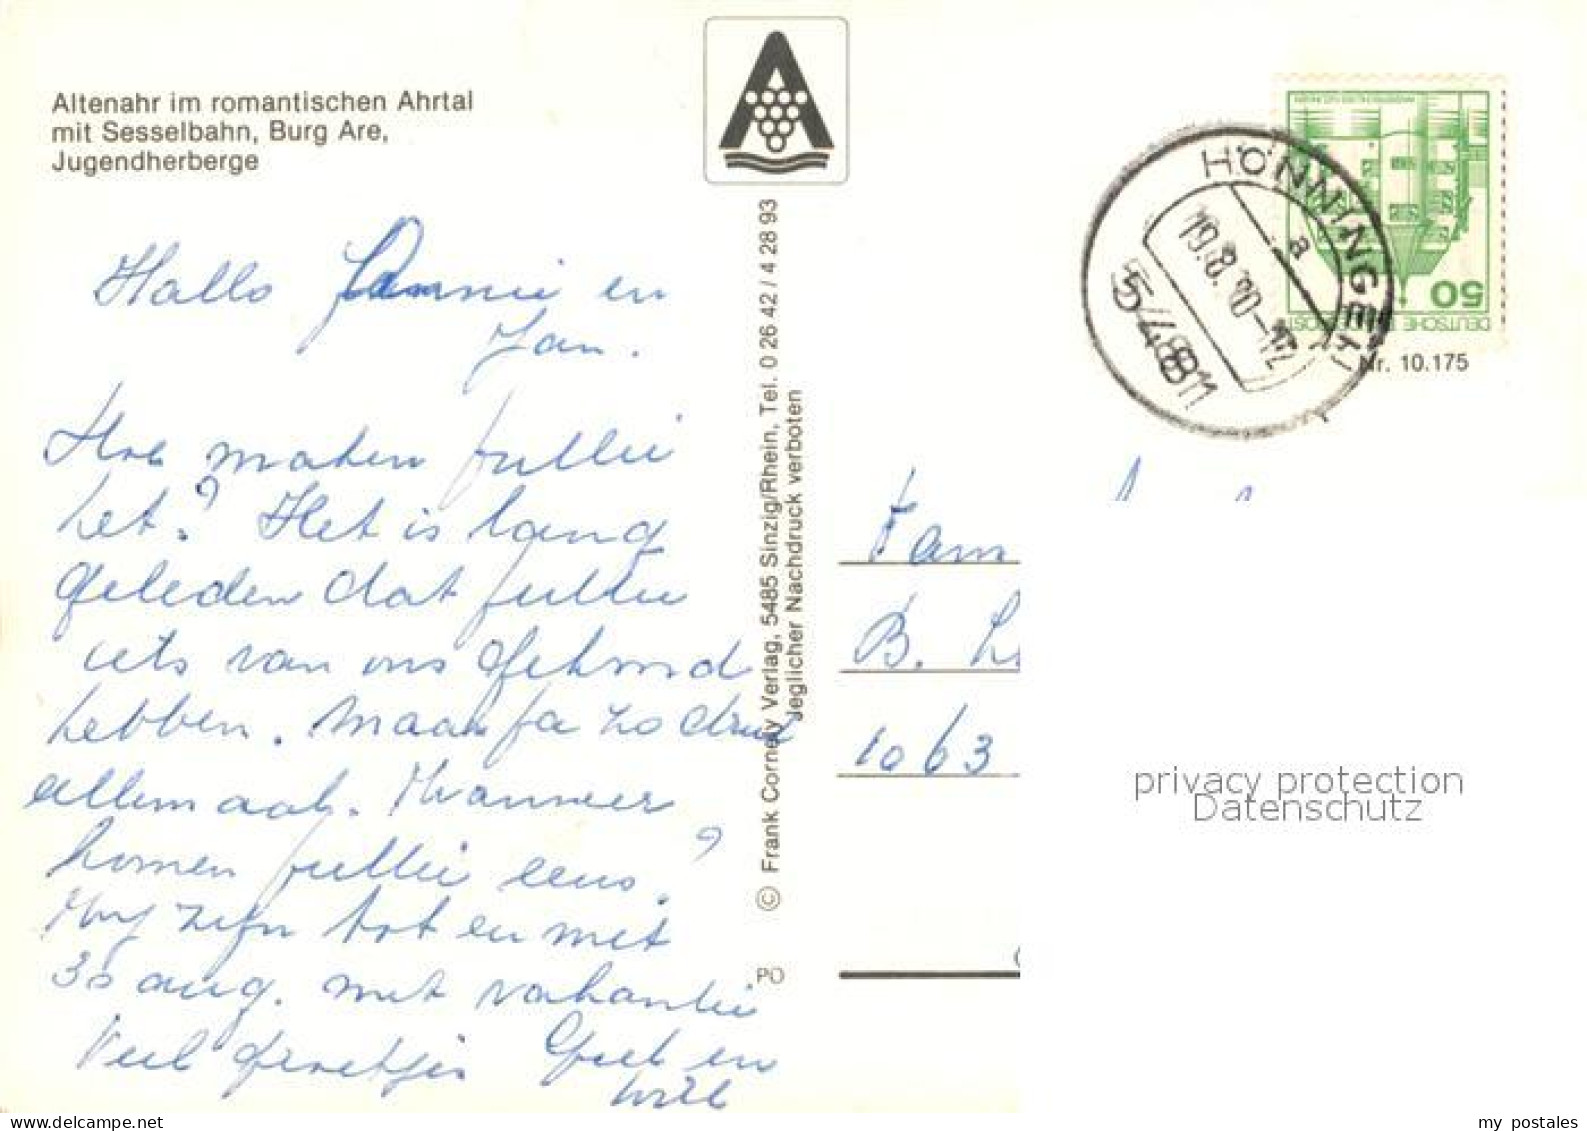 Altenahr im romantischen Ahrtal
mit Sesselbahn, Burg Are,
Jugendherberge
Hallo Jannie en
Jan.
Hoe maken jullie
het? Het is lang
geleden dat jullie
iets van ons gehoord
hebben. Maar ja zo druk
allemaal. Wanneer
komen jullie eens?
Wij zijn tot en met
30 aug. met vakantie
Veel groetjes
en
Will
© Frank Cornely Verlag, 5485 Sinzig/Rhein, Tel. 0 26 42 / 4 28 93
Jeglicher Nachdruck verboten
PO
HÖNNINGEN
a
19.8.80-12
5488 11
50
DEUTSCHE BUNDESPOST
Nr. 10.175
Fam
B. L
1063
privacy protection
Datenschutz
my postales